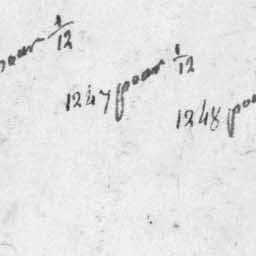 pour 1/12
1247 pour 1/12
1248 pou